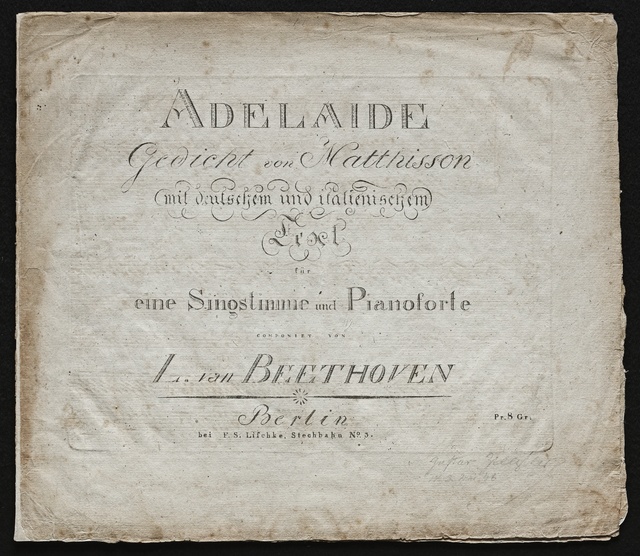 ADELAIDE
Gedicht von Matthisson
mit deutschem und italienischem
Text
für
eine Singstimme und Pianoforte
COMPONIRT VON
L. van BEETHOVEN
Berlin
Pr. 8 Gr.
bei F. S. Lischke, Stechbahn No. 3.
Gustav